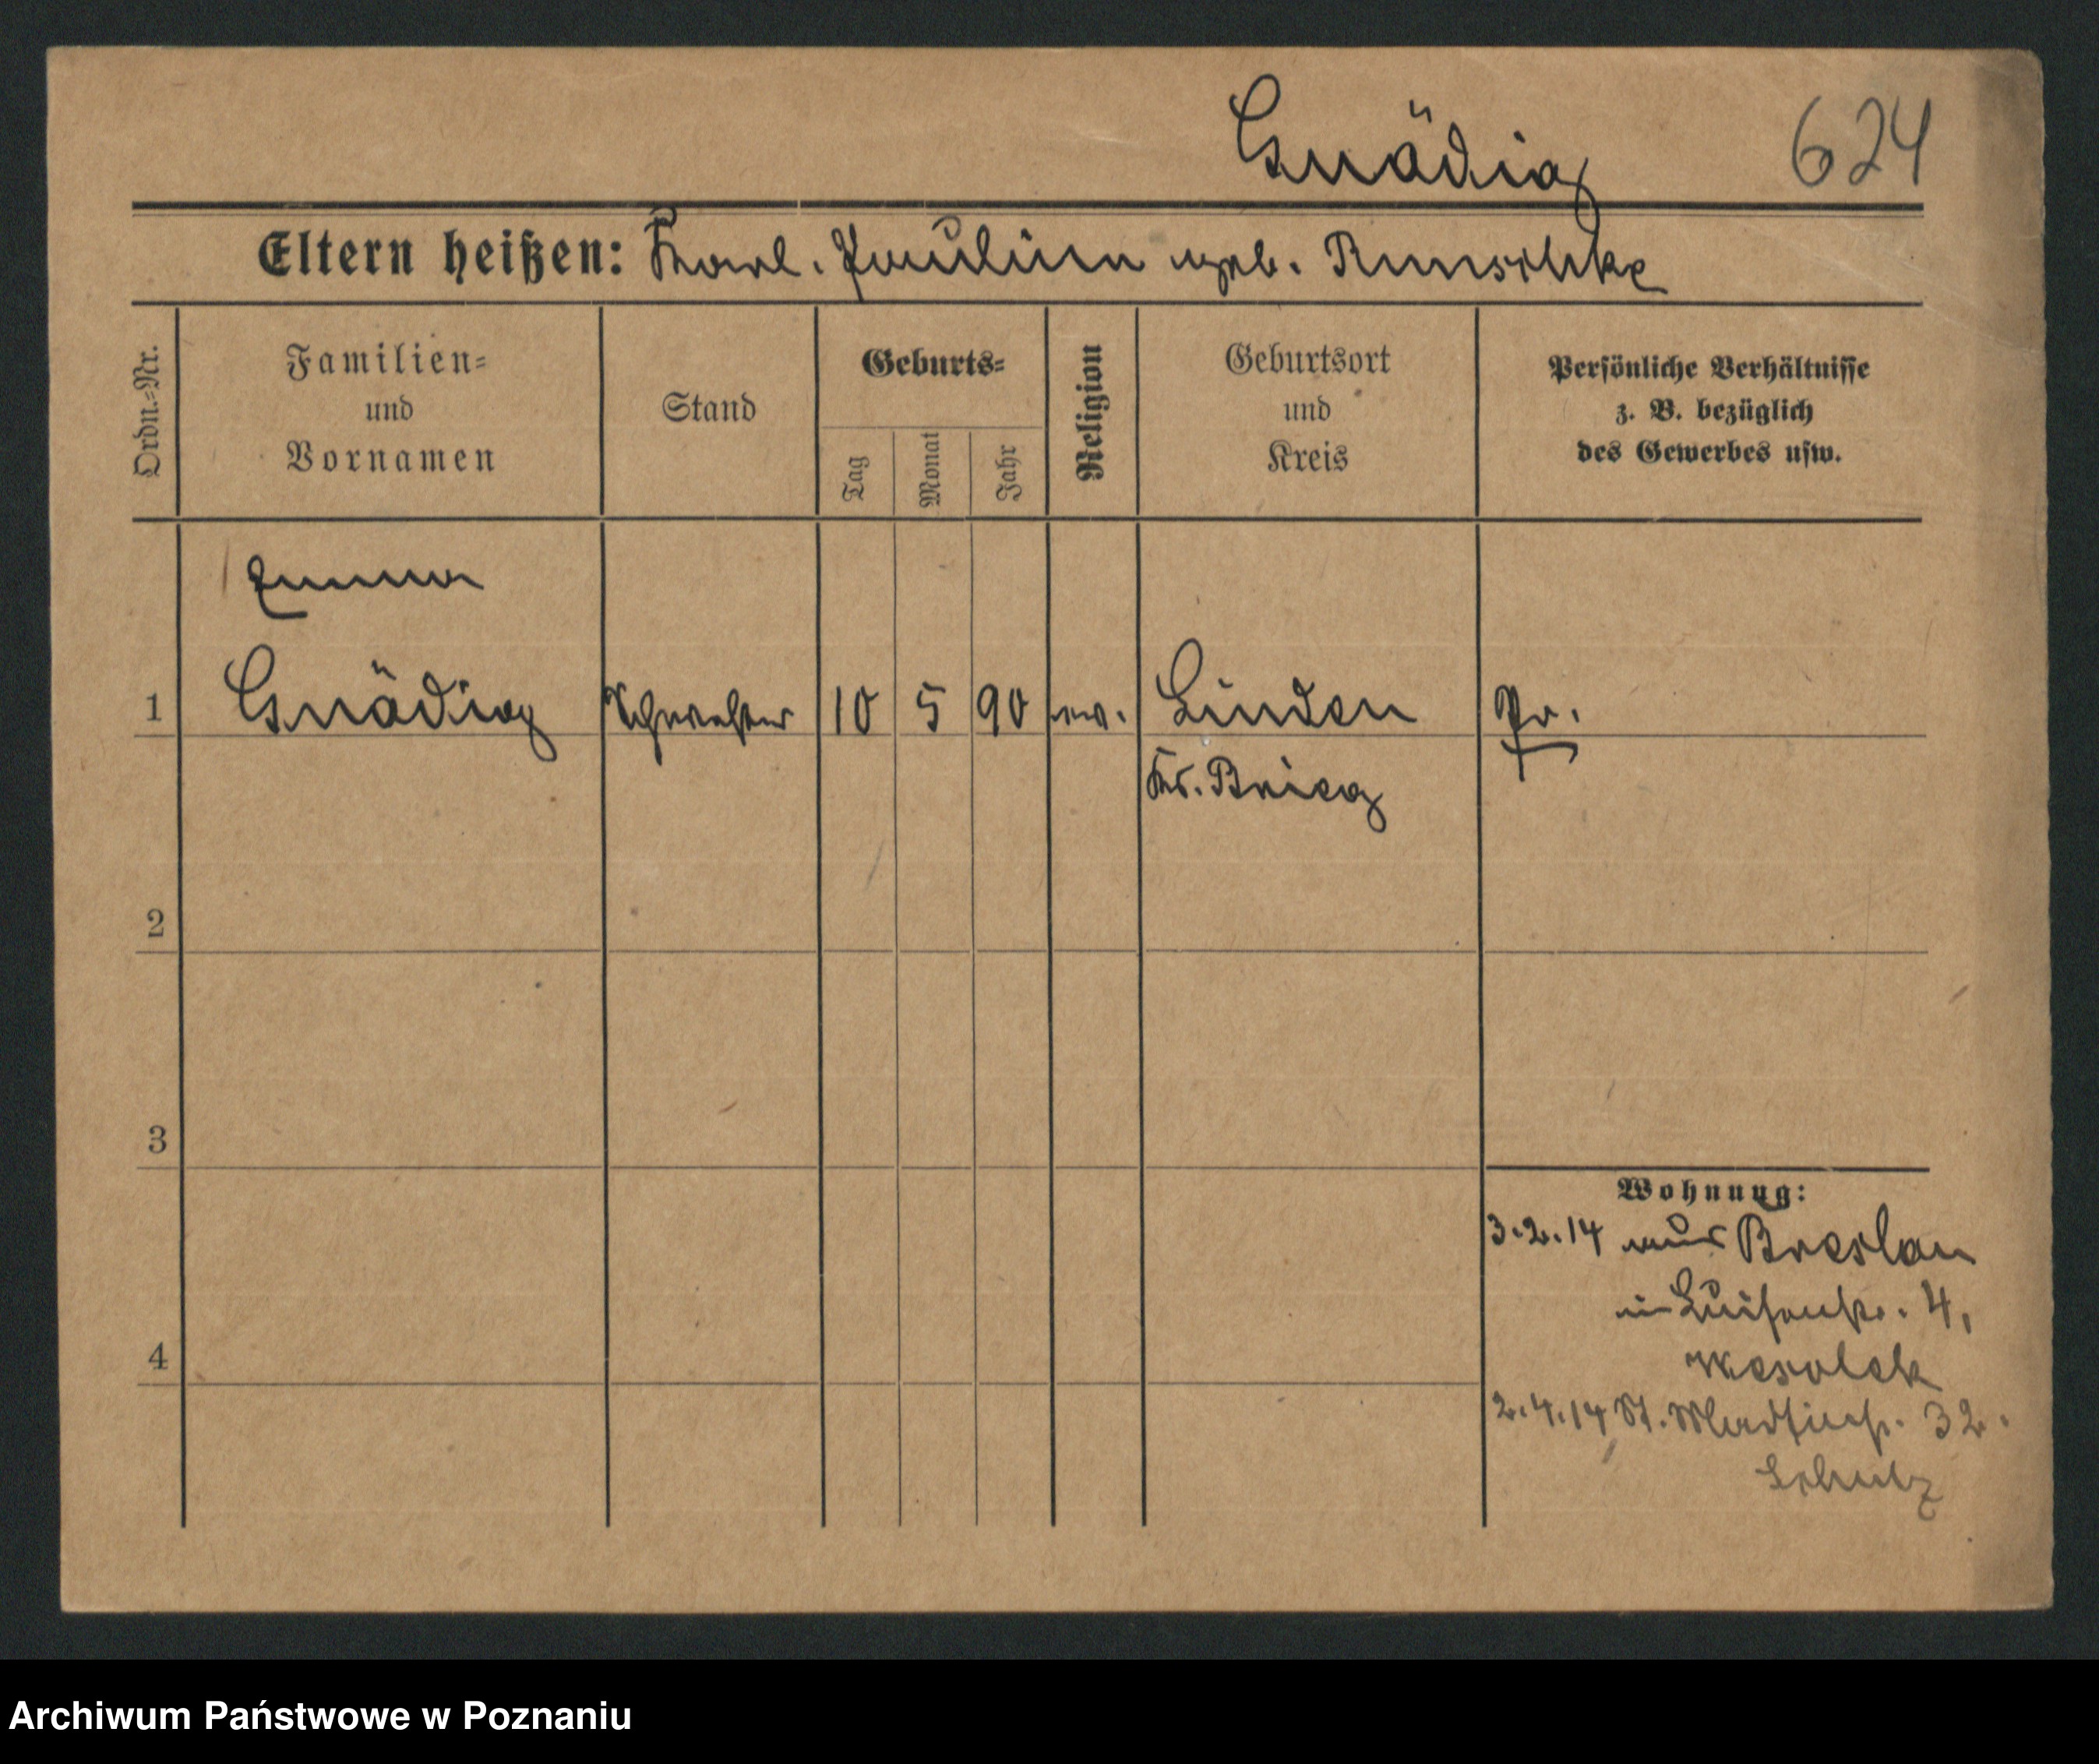 Gnädig 624
Eltern heißen: Karl. Pauline geb. Runschke
Ordn.-Nr.
Familien-
und
Vornamen
Stand
Geburts-
Tag
Monat
Jahr
Religion
Geburtsort
und
Kreis
Persönliche Verhältnisse
z. B. bezüglich
des Gewerbes usw.
Emma
1 Gnädig Schwester 10 5 90 ev. Linden Pr.
Kr. Brieg
2
3
Wohnung:
3.2.14 aus Breslau
in Luisenstr. 4,
4
Wesolek
2.4.14 St. Martinstr. 32.
Schulz
Archiwum Państwowe w Poznaniu